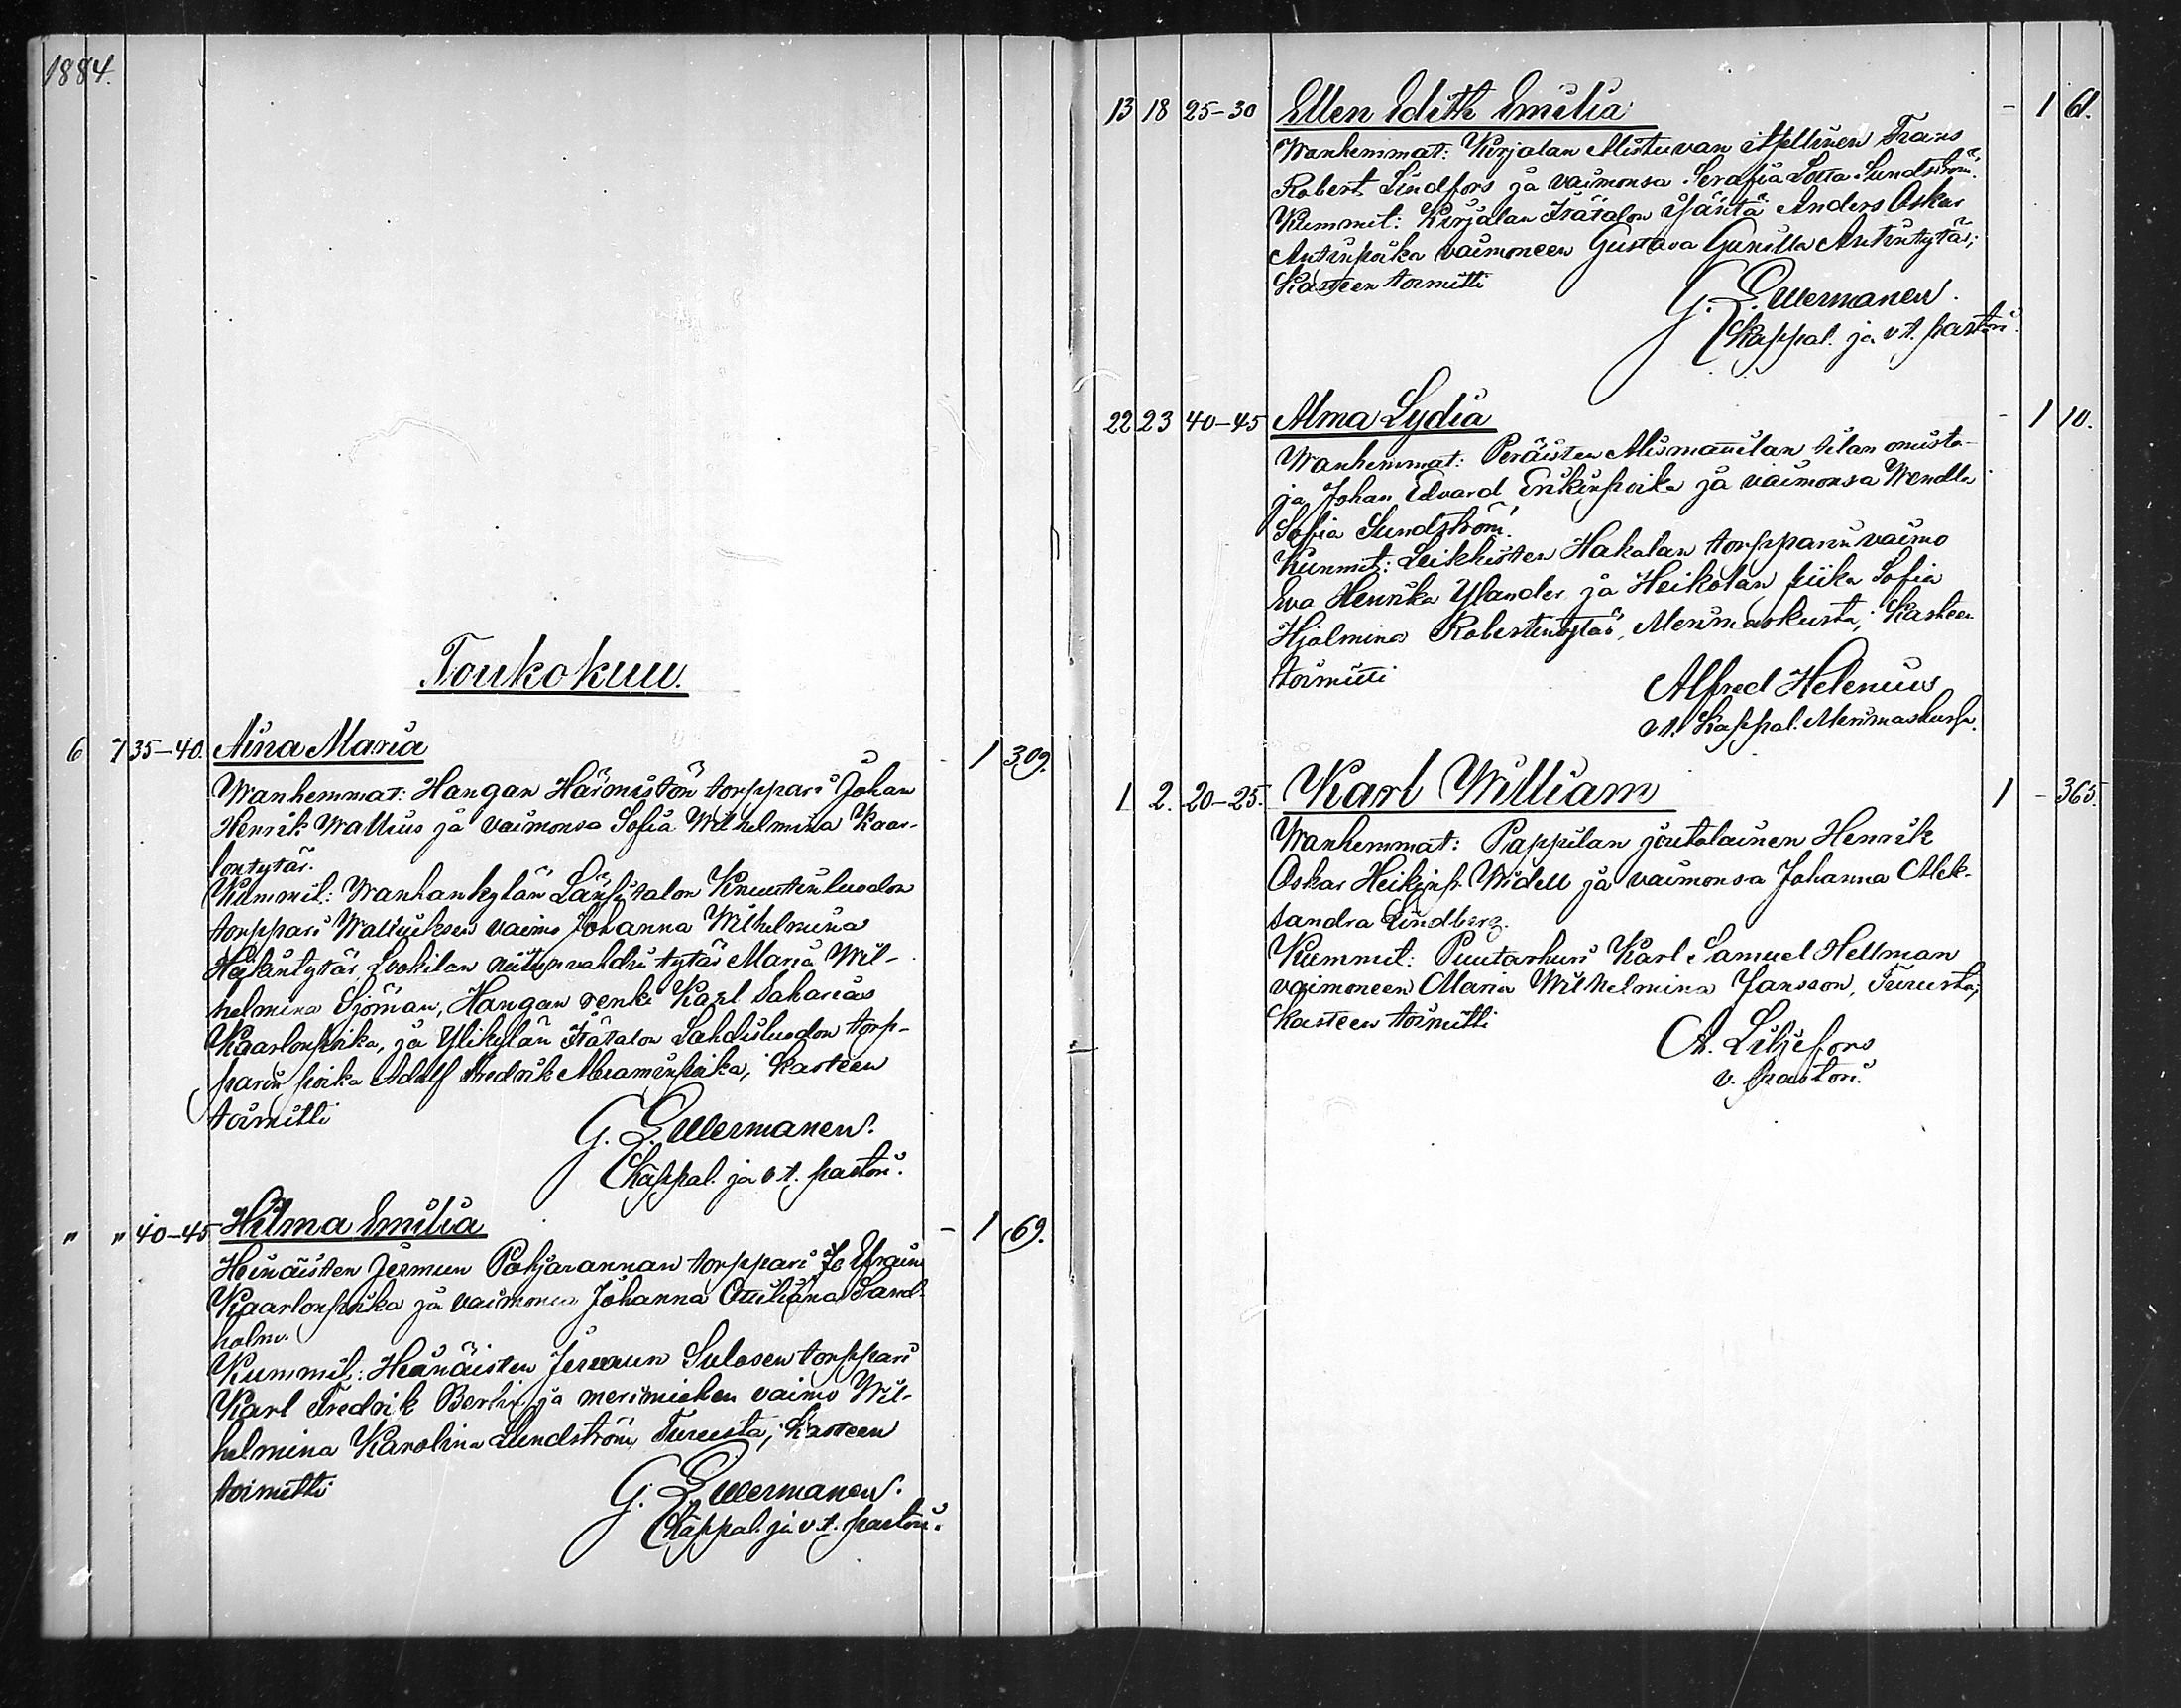 1884.
Toukokuu.
6 7 35-40. Aina Maria - 1 309.
Wanhemmat: Hangan Härmistön torppari Johan
Henrik Wallius ja vaimonsa Sofia Wilhelmina Kaar-
lontytär.
Kummit: Wanhankylän Länsitalon Knuutinluodon
torppari Walliuksen vaimo Johanna Wilhelmina
Heikintytär, tytär Maria Wil-
helmina Sjöman, Hangan renki Karl Sakarias
Kaarlonpoika, ja Ylikylän Itätalon Lahdisluodon torp-
parin poika Adolf Fredrik Abraminpoika; Kasteen
toimitti
G. L. Wermanen.
Kappal. ja v.t. pastori.
" " 40-45 Hilma Emilia - 1 69.
Heinäisten Jermun Pohjarannan torppari Efraim
Kaarlonpoika ja vaimonsa Johanna Otiliana Sand-
holm.
Kummit: Heinäisten Jermun Sulosen torppari
Karl Fredrik Berlin ja merimiehen vaimo Wil-
helmina Karolina Lundström, Turusta; Kasteen
toimitti
G. L. Wermanen.
Kappal. ja v.t. pastori.
13 18 25-30 Ellen Edith Emilia - 1 61.
Wanhemmat: Kirjalan Alistuvan itsellinen Frans
Robert Lindfors ja vaimonsa Serafia Lovisa Sundström.
Kummit: Kirjalan Itätalon isäntä Anders Oskar
Antinpoika vaimoneen Gustava Gunilla Antintytär;
Kasteen toimitti
G. L. Wermanen.
Kappal. ja v.t. pastori.
22 23 40-45 Alma Lydia - 1 10.
Wanhemmat: Peräisten Alismattilan tilan omista-
ja Johan Edvard Erikinpoika ja vaimonsa Wendla
Sofia Sundström.
Kummit: Leikkisten Hakalan torpparin vaimo
Eva Henrika Ylander ja Heikolan piika Sofia
Hjalmina Robertintytär, Merimaskusta; Kasteen
toimitti
Alfred Helenius
v. Kappal. Merimaskussa.
1 2. 20-25. Karl William 1 - 365.
Wanhemmat: Pappilan joutolainen Henrik
Oskar Heikinp. Widell ja vaimonsa Johanna Alek-
sandra Lindberg.
Kummit: Puutarhuri Karl Samuel Hellman
vaimoneen Maria Wilhelmina Jansson, Turusta;
Kasteen toimitti
A. Liljefors
v. pastori.